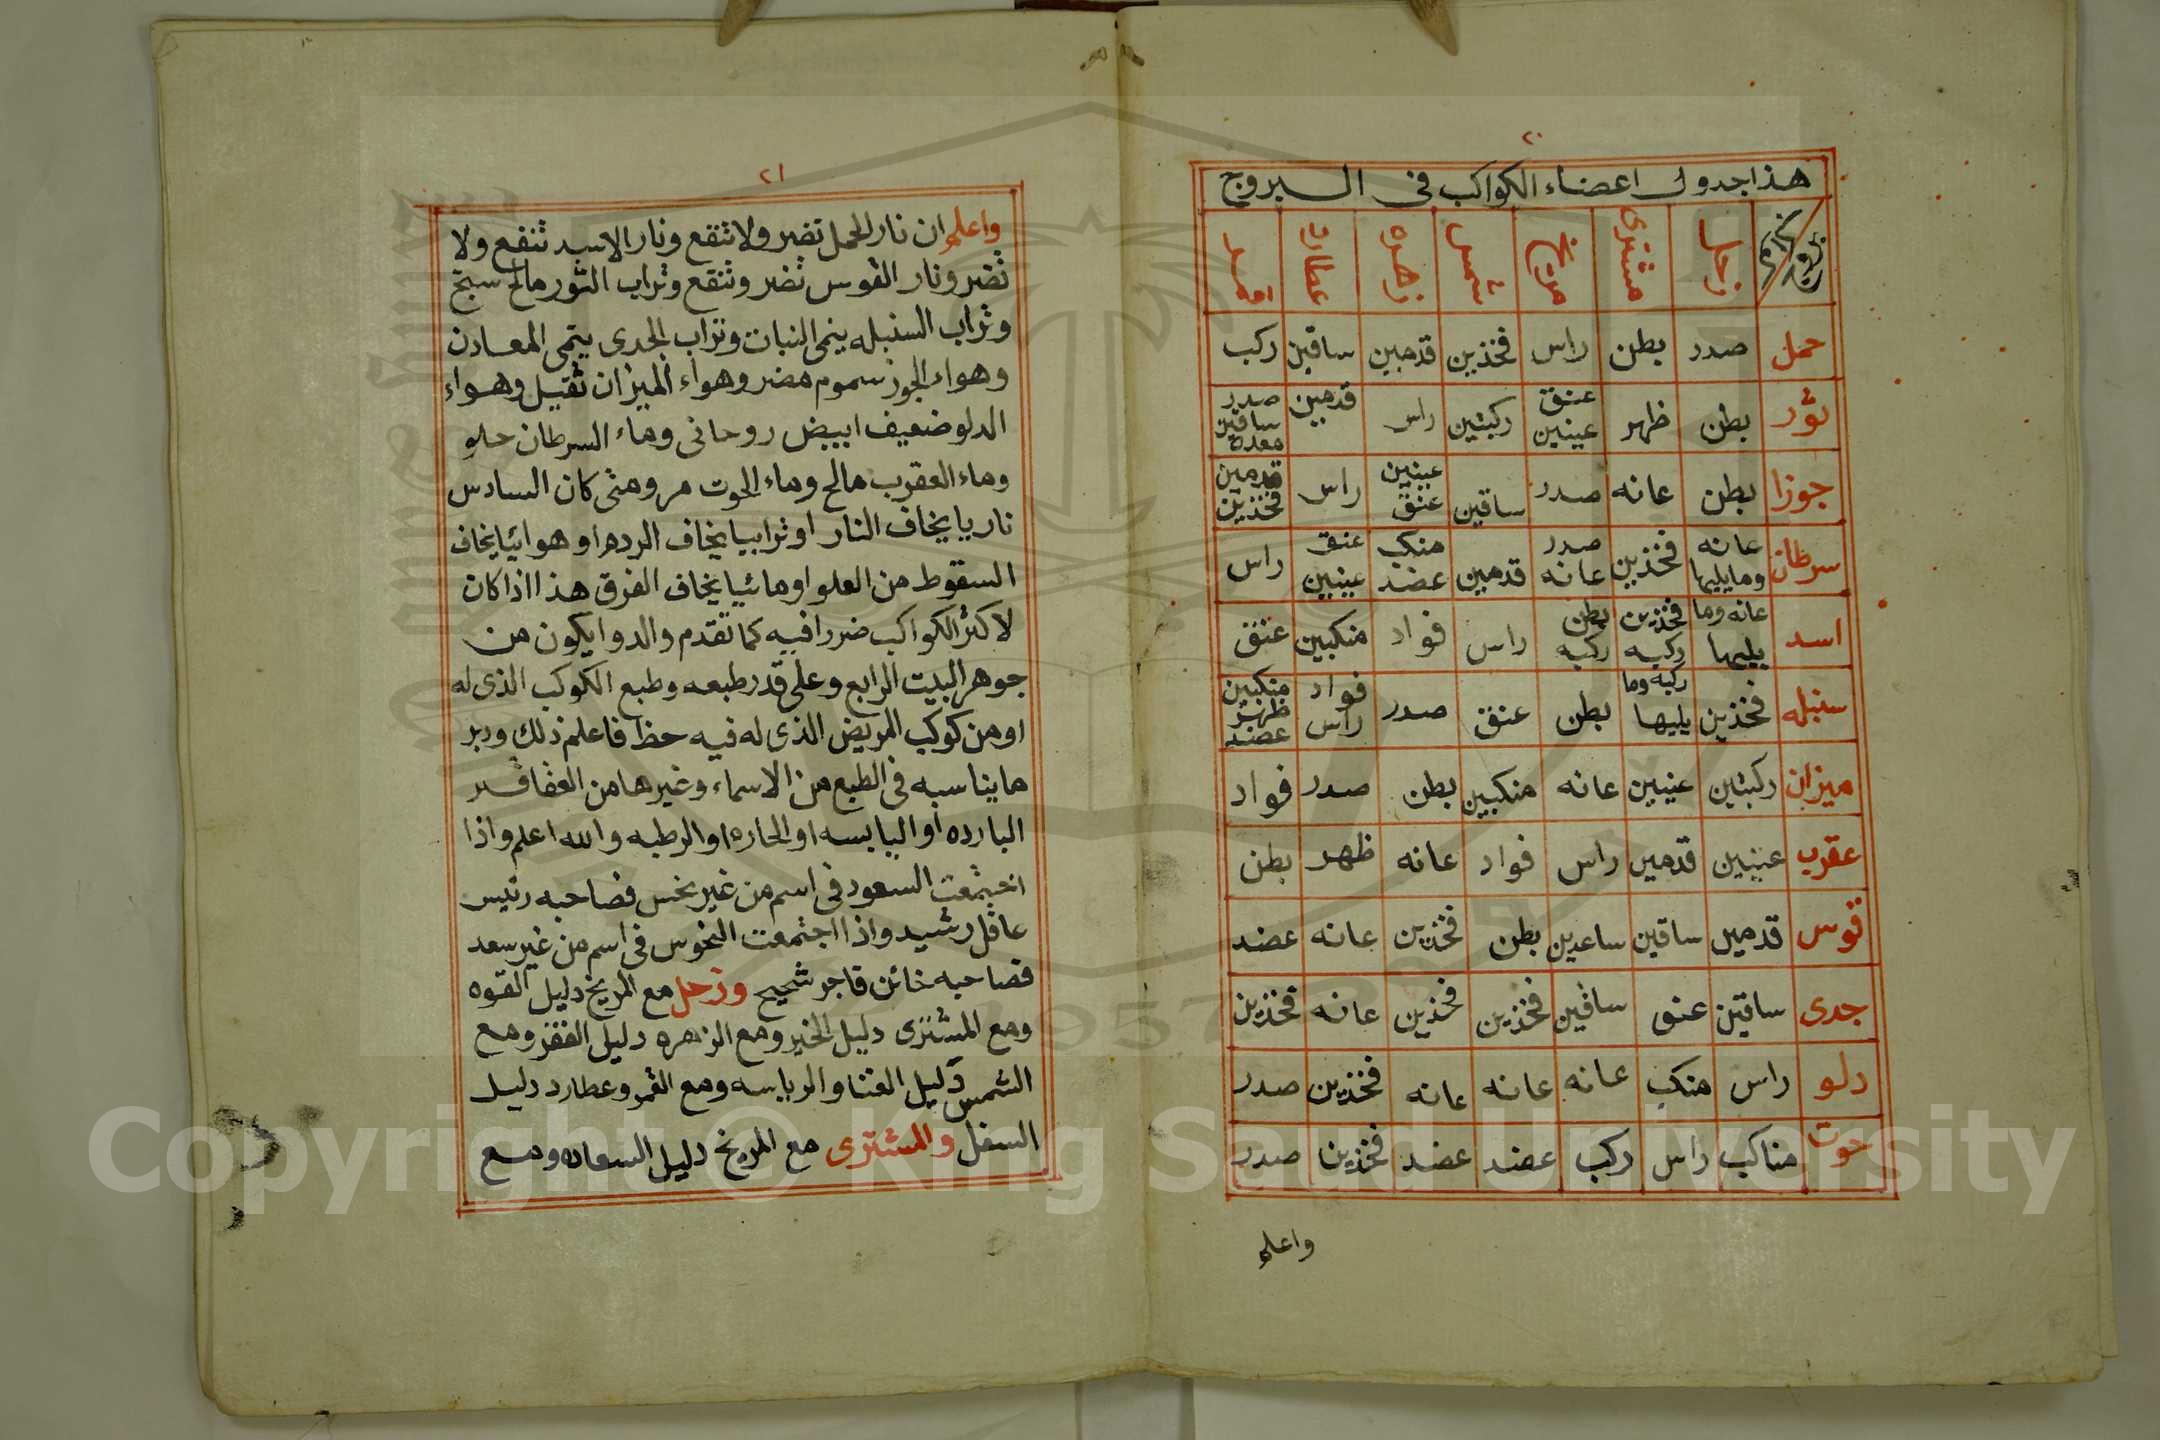 ٢٠
هذا جدول اعضاء الكواكب فى البروج
بروج زحل مشترى مريخ شمس زهره عطارد قمر
حمل صدر بطن راس فخذين قدمين ساقين ركب
ثور بطن ظهر عنق عينين ركبتين راس قدمين صدر ساقين معده
جوزا بطن عانه صدر ساقين عينين عنق راس قدمين فخذين
سرطان عانه ومايليها فخذين صدر عانه قدمين منكب عضد عنق عينين راس
اسد عانه وما يليها فخذين ركبه بطن ركبه راس فواد منكبين عنق
سنبله فخذين ركبه وما يليها بطن عنق صدر فواد راس منكبين ظهر عضد
ميزان ركبتين عينين عانه منكبين بطن صدر فواد
عقرب عينين قدمين راس فواد عانه ظهر بطن
قوس قدمين ساقين ساعدين بطن فخذين عانه عضد
جدى ساقين عنق ساقين فخذين فخذين عانه فخذين
دلو راس منكب عانه عانه عانه فخذين صدر
حوت مناكب راس ركب عضد عضد فخذين صدر
واعلم
٢١
واعلم ان نار الحمل تضر ولا تنفع ونار الاسد تنفع ولا
تضر ونار القوس تضر وتنفع وتراب الثور مالح سبخ
وتراب السنبله ينمى النبات وتراب الجدى ينمى المعادن
وهواء الجوز سموم مضر وهواء الميزان ثقيل وهواء
الدلو ضعيف ابيض روحانى وماء السرطان حلو
وماء العقرب مالح وماء الحوت مر ومتى كان السادس
ناريا يخاف النار او ترابيا يخاف الردم او هوائيا يخاف
السقوط من العلو او مائيا يخاف الغرق هذا اذا كان
لاكثر الكواكب ضررا فيه كما تقدم والدوا يكون من
جوهر البيت الرابع وعلى قدر طبعه وطبع الكوكب الذى له
او من كوكب المريض الذى له فيه حظ فاعلم ذلك ودبر
ما يناسبه فى الطبع من الاسماء وغيرها من العقاقير
البارده او اليابسه او الحاره او الرطبه والله اعلم واذا
اجتمعت السعود فى اسم من غير نحس فصاحبه رئيس
عاقل رشيد واذا اجتمعت النحوس فى اسم من غير سعد
فصاحبه خائن فاجر شحيح وزحل مع المريخ دليل القوه
ومع المشترى دليل الخير ومع الزهره دليل الفقر ومع
الشمس دليل الغنا والرياسه ومع القمر وعطارد دليل
السفل والمشترى مع المريخ دليل السعاده ومع
Copyright © King Saud University
1957